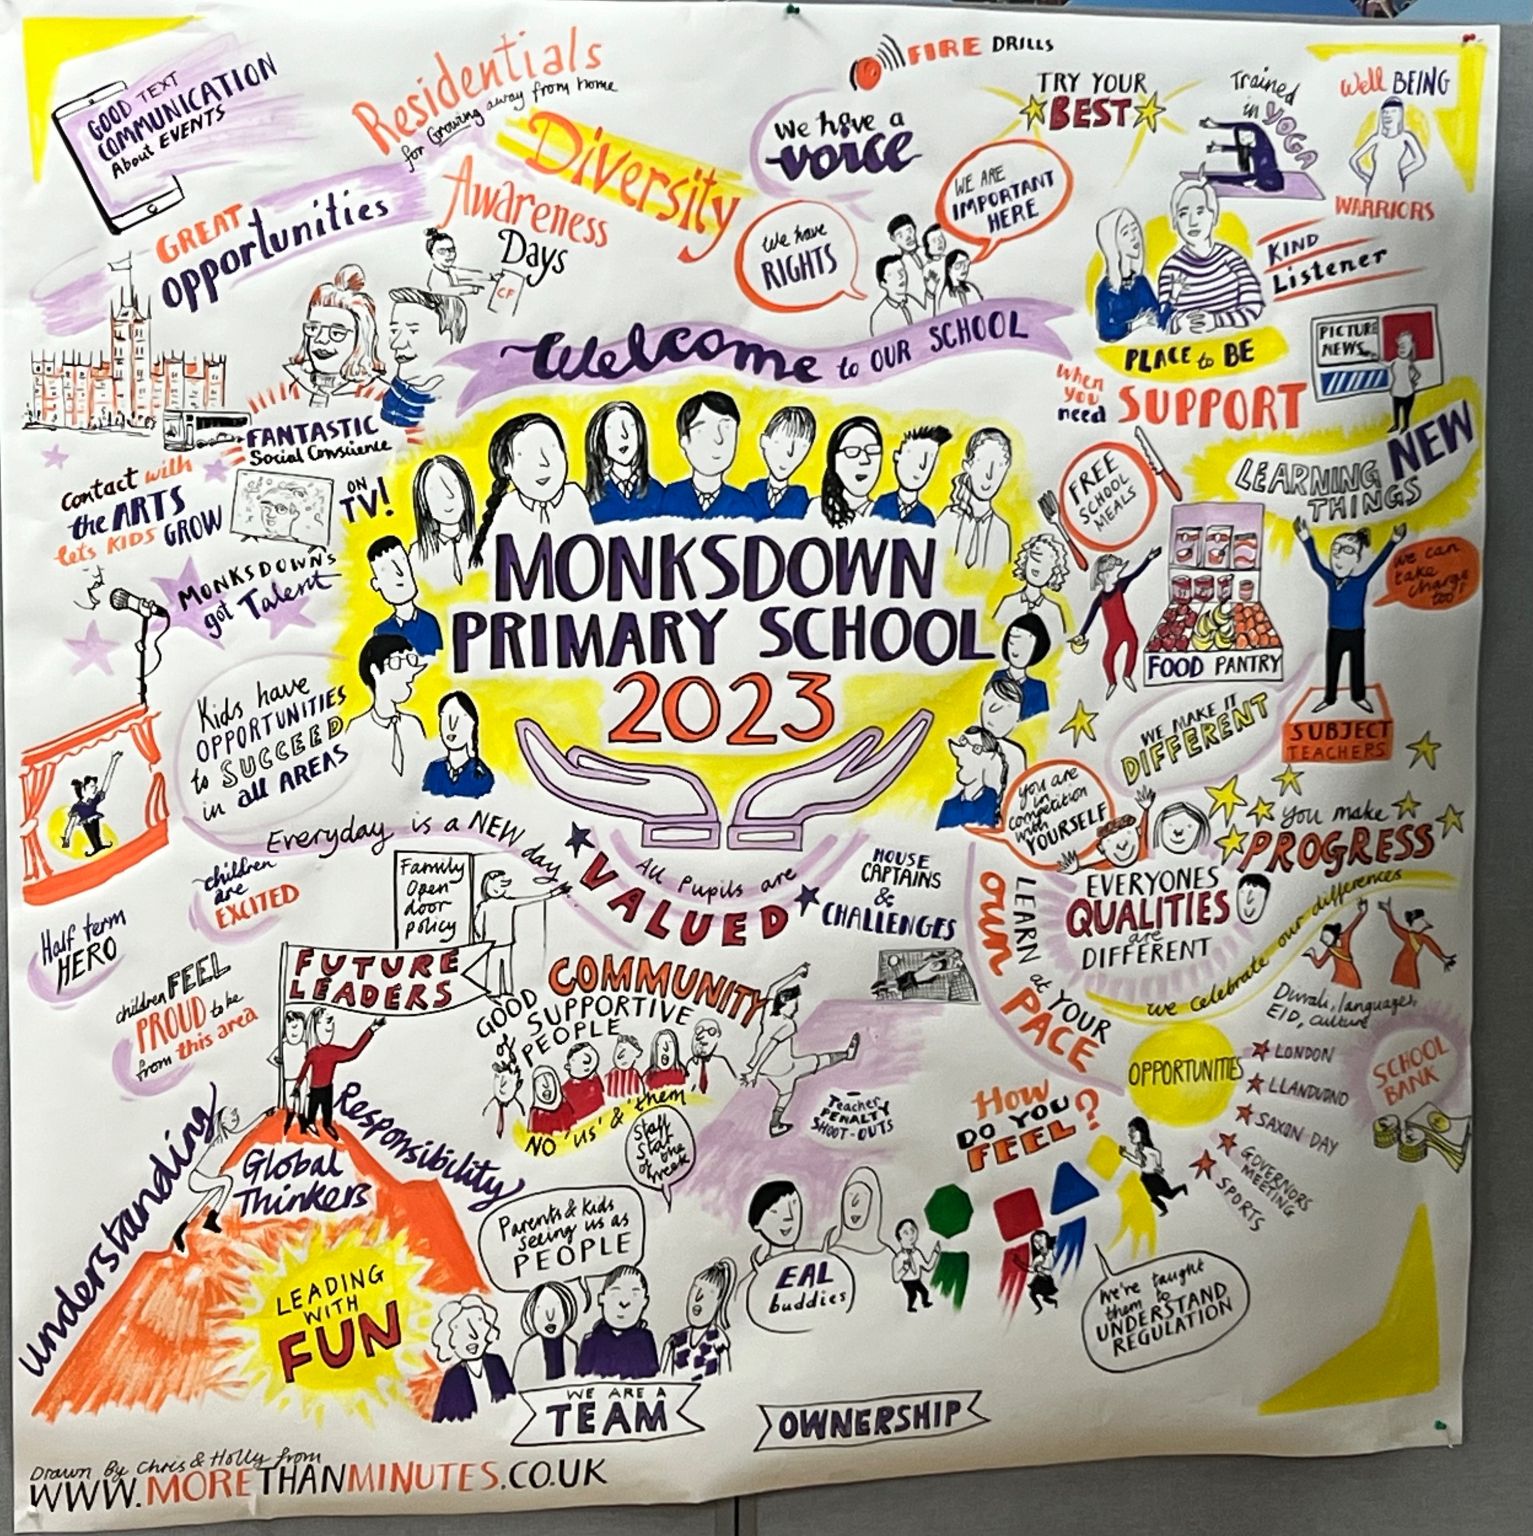 GOOD TEXT
COMMUNICATION
About EVENTS
Residentials
for Growing away from home
Diversity
Awareness
Days
CF
GREAT
opportunities
FIRE DRILLS
We have a
voice
We have
RIGHTS
WE ARE
IMPORTANT
HERE
TRY YOUR
BEST
Trained
in
YOGA
Well BEING
WARRIORS
KIND
Listener
PLACE to BE
When
you
need
SUPPORT
PICTURE
NEWS
LEARNING NEW
THINGS
Welcome to OUR SCHOOL
FANTASTIC
Social Conscience
ON
TV!
Contact with
the ARTS
lets KIDS GROW
MONKSDOWN's
got Talent
MONKSDOWN
PRIMARY SCHOOL
2023
FREE
SCHOOL
MEALS
FOOD PANTRY
We can
take
charge
too!
SUBJECT
TEACHERS
WE MAKE IT
DIFFERENT
Kids have
OPPORTUNITIES
to SUCCEED
in all AREAS
Everyday is a NEW day
All Pupils are
VALUED
HOUSE
CAPTAINS
&
CHALLENGES
you are
in
competition
with
YOURSELF
you make
PROGRESS
EVERYONES
QUALITIES
are
DIFFERENT
LEARN at YOUR
OWN PACE
we celebrate our differences
Diwali, languages,
EID, culture
children
are
EXCITED
Family
Open
door
policy
Half term
HERO
children FEEL
PROUD to be
from this area
FUTURE
LEADERS
COMMUNITY
GOOD
of SUPPORTIVE
PEOPLE
NO 'us' & 'them
Staff
Star
of the
week
Teacher
PENALTY
SHOOT-OUTS
How
DO YOU
FEEL?
OPPORTUNITIES
LONDON
LLANDUDNO
SAXON DAY
GOVERNORS
MEETING
SPORTS
SCHOOL
BANK
understanding
Responsibility
Global
Thinkers
LEADING
WITH
FUN
Parents & Kids
seeing us as
PEOPLE
EAL
buddies
We're taught
them to
UNDERSTAND
REGULATION
WE ARE A
TEAM
OWNERSHIP
Drawn By Chris & Holly from
WWW.MORETHANMINUTES.CO.UK